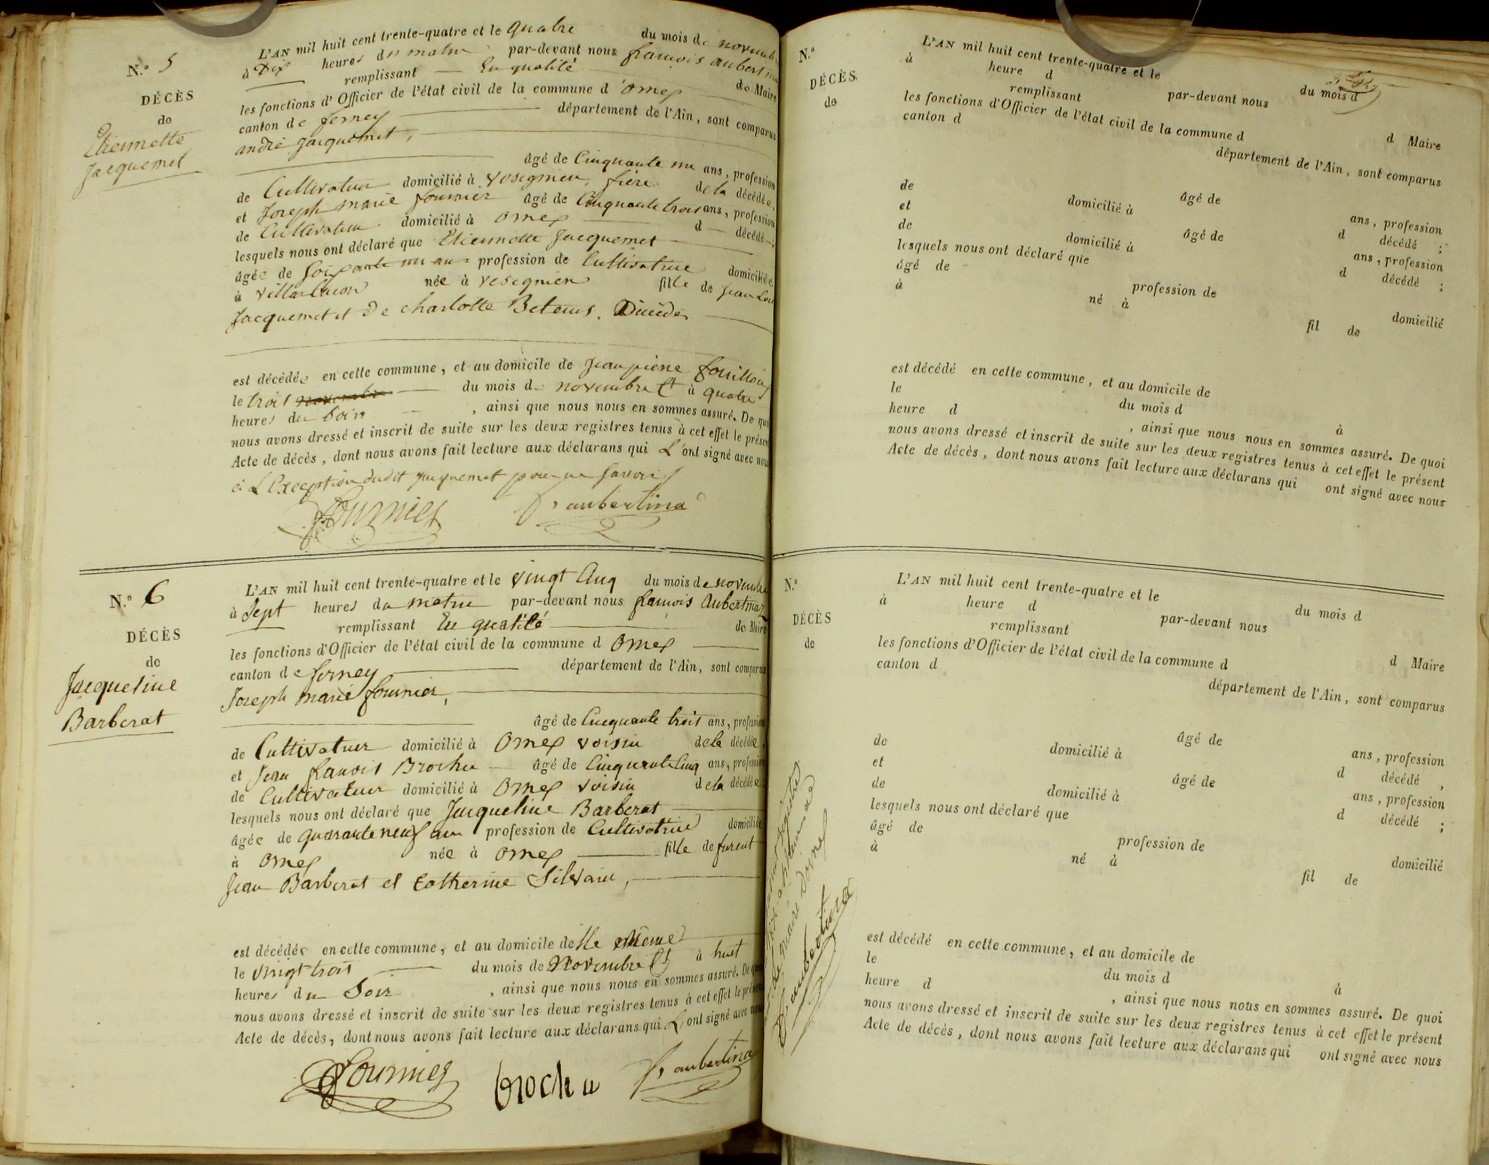 N.o 5
DÉCÈS
de
Etiennette
Jacquemet
L'AN mil huit cent trente-quatre et le quatre du mois de novembre
à Dix heures du matin par-devant nous françois aubert
remplissant En qualité de Maire
les fonctions d'Officier de l'état civil de la commune d'Ornex
canton de ferney département de l'Ain, sont comparus
andré Jacquemet,
âgé de Cinquante un ans, profession
de Cultivateur domicilié à vesegnieu, frère de la décédée,
et Joseph marie fournier âgé de Cinquante trois ans, profession
de Cultivateur domicilié à Ornex d décédé
lesquels nous ont déclaré que Etiennette Jacquemet
âgée de Soixante un ans profession de Cultivatrice domiciliée
à née à vesegnieu fille de Jean Louis
Jacquemet et de charlotte Betems. Décédés
est décédée en cette commune, et au domicile de Jean pierre fouilloux
le trois du mois de novembre à quatre
heures du Soir, ainsi que nous nous en sommes assuré. De quoi
nous avons dressé et inscrit de suite sur les deux registres tenus à cet effet le présent
Acte de décès, dont nous avons fait lecture aux déclarans qui L'ont signé avec nous
à L'Exception dudit Jacquemet pour ne savoir
Fournier aubertin
N.o 6
DÉCÈS
de
Jacqueline
Barberat
L'AN mil huit cent trente-quatre et le vingt Cinq du mois de novembre
à Sept heures du matin par-devant nous françois Aubertin
remplissant En qualité de Maire
les fonctions d'Officier de l'état civil de la commune d Ornex
canton de ferney département de l'Ain, sont comparus
Joseph marie fournier,
âgé de Cinquante trois ans, profession
de Cultivateur domicilié à Ornex voisin de la décédée,
et Jean françois Brochu âgé de Cinquante Cinq ans, profession
de Cultivateur domicilié à Ornex voisin de la décédée
lesquels nous ont déclaré que Jacqueline Barberat
âgée de quarante neuf ans profession de Cultivatrice domiciliée
à Ornex née à Ornex fille de furent
Jean Barberat et Catherine Silvain,
est décédée en cette commune, et au domicile de Elle même
le vingt trois du mois de Novembre à huit
heures du Soir, ainsi que nous nous en sommes assuré. De quoi
nous avons dressé et inscrit de suite sur les deux registres tenus à cet effet le présent
Acte de décès, dont nous avons fait lecture aux déclarans qui L'ont signé avec nous
Fournier brochu aubertin
N.o
DÉCÈS
de
L'AN mil huit cent trente-quatre et le du mois d
à heure d par-devant nous
remplissant d Maire
les fonctions d'Officier de l'état civil de la commune d
canton d département de l'Ain, sont comparus
âgé de ans, profession
de domicilié à d décédé ;
et âgé de ans, profession
de domicilié à d décédé ;
lesquels nous ont déclaré que
âgé de profession de domicilié
à né à fil de
est décédé en cette commune, et au domicile de
le du mois d à
heure d , ainsi que nous nous en sommes assuré. De quoi
nous avons dressé et inscrit de suite sur les deux registres tenus à cet effet le présent
Acte de décès, dont nous avons fait lecture aux déclarans qui ont signé avec nous
N.o
DÉCÈS
de
L'AN mil huit cent trente-quatre et le du mois d
à heure d par-devant nous
remplissant d Maire
les fonctions d'Officier de l'état civil de la commune d
canton d département de l'Ain, sont comparus
âgé de ans, profession
de domicilié à d décédé ,
et âgé de ans, profession
de domicilié à d décédé ;
lesquels nous ont déclaré que
âgé de profession de domicilié
à né à fil de
est décédé en cette commune, et au domicile de
le du mois d à
heure d , ainsi que nous nous en sommes assuré. De quoi
nous avons dressé et inscrit de suite sur les deux registres tenus à cet effet le présent
Acte de décès, dont nous avons fait lecture aux déclarans qui ont signé avec nous